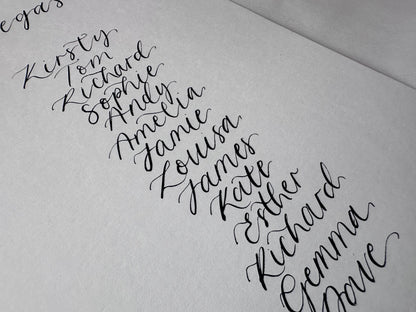 egas
Kirsty
Tom
Richard
Sophie
Andy
Amelia
Jamie
Louisa
James
Kate
Esther
Richard
Gemma
Dave